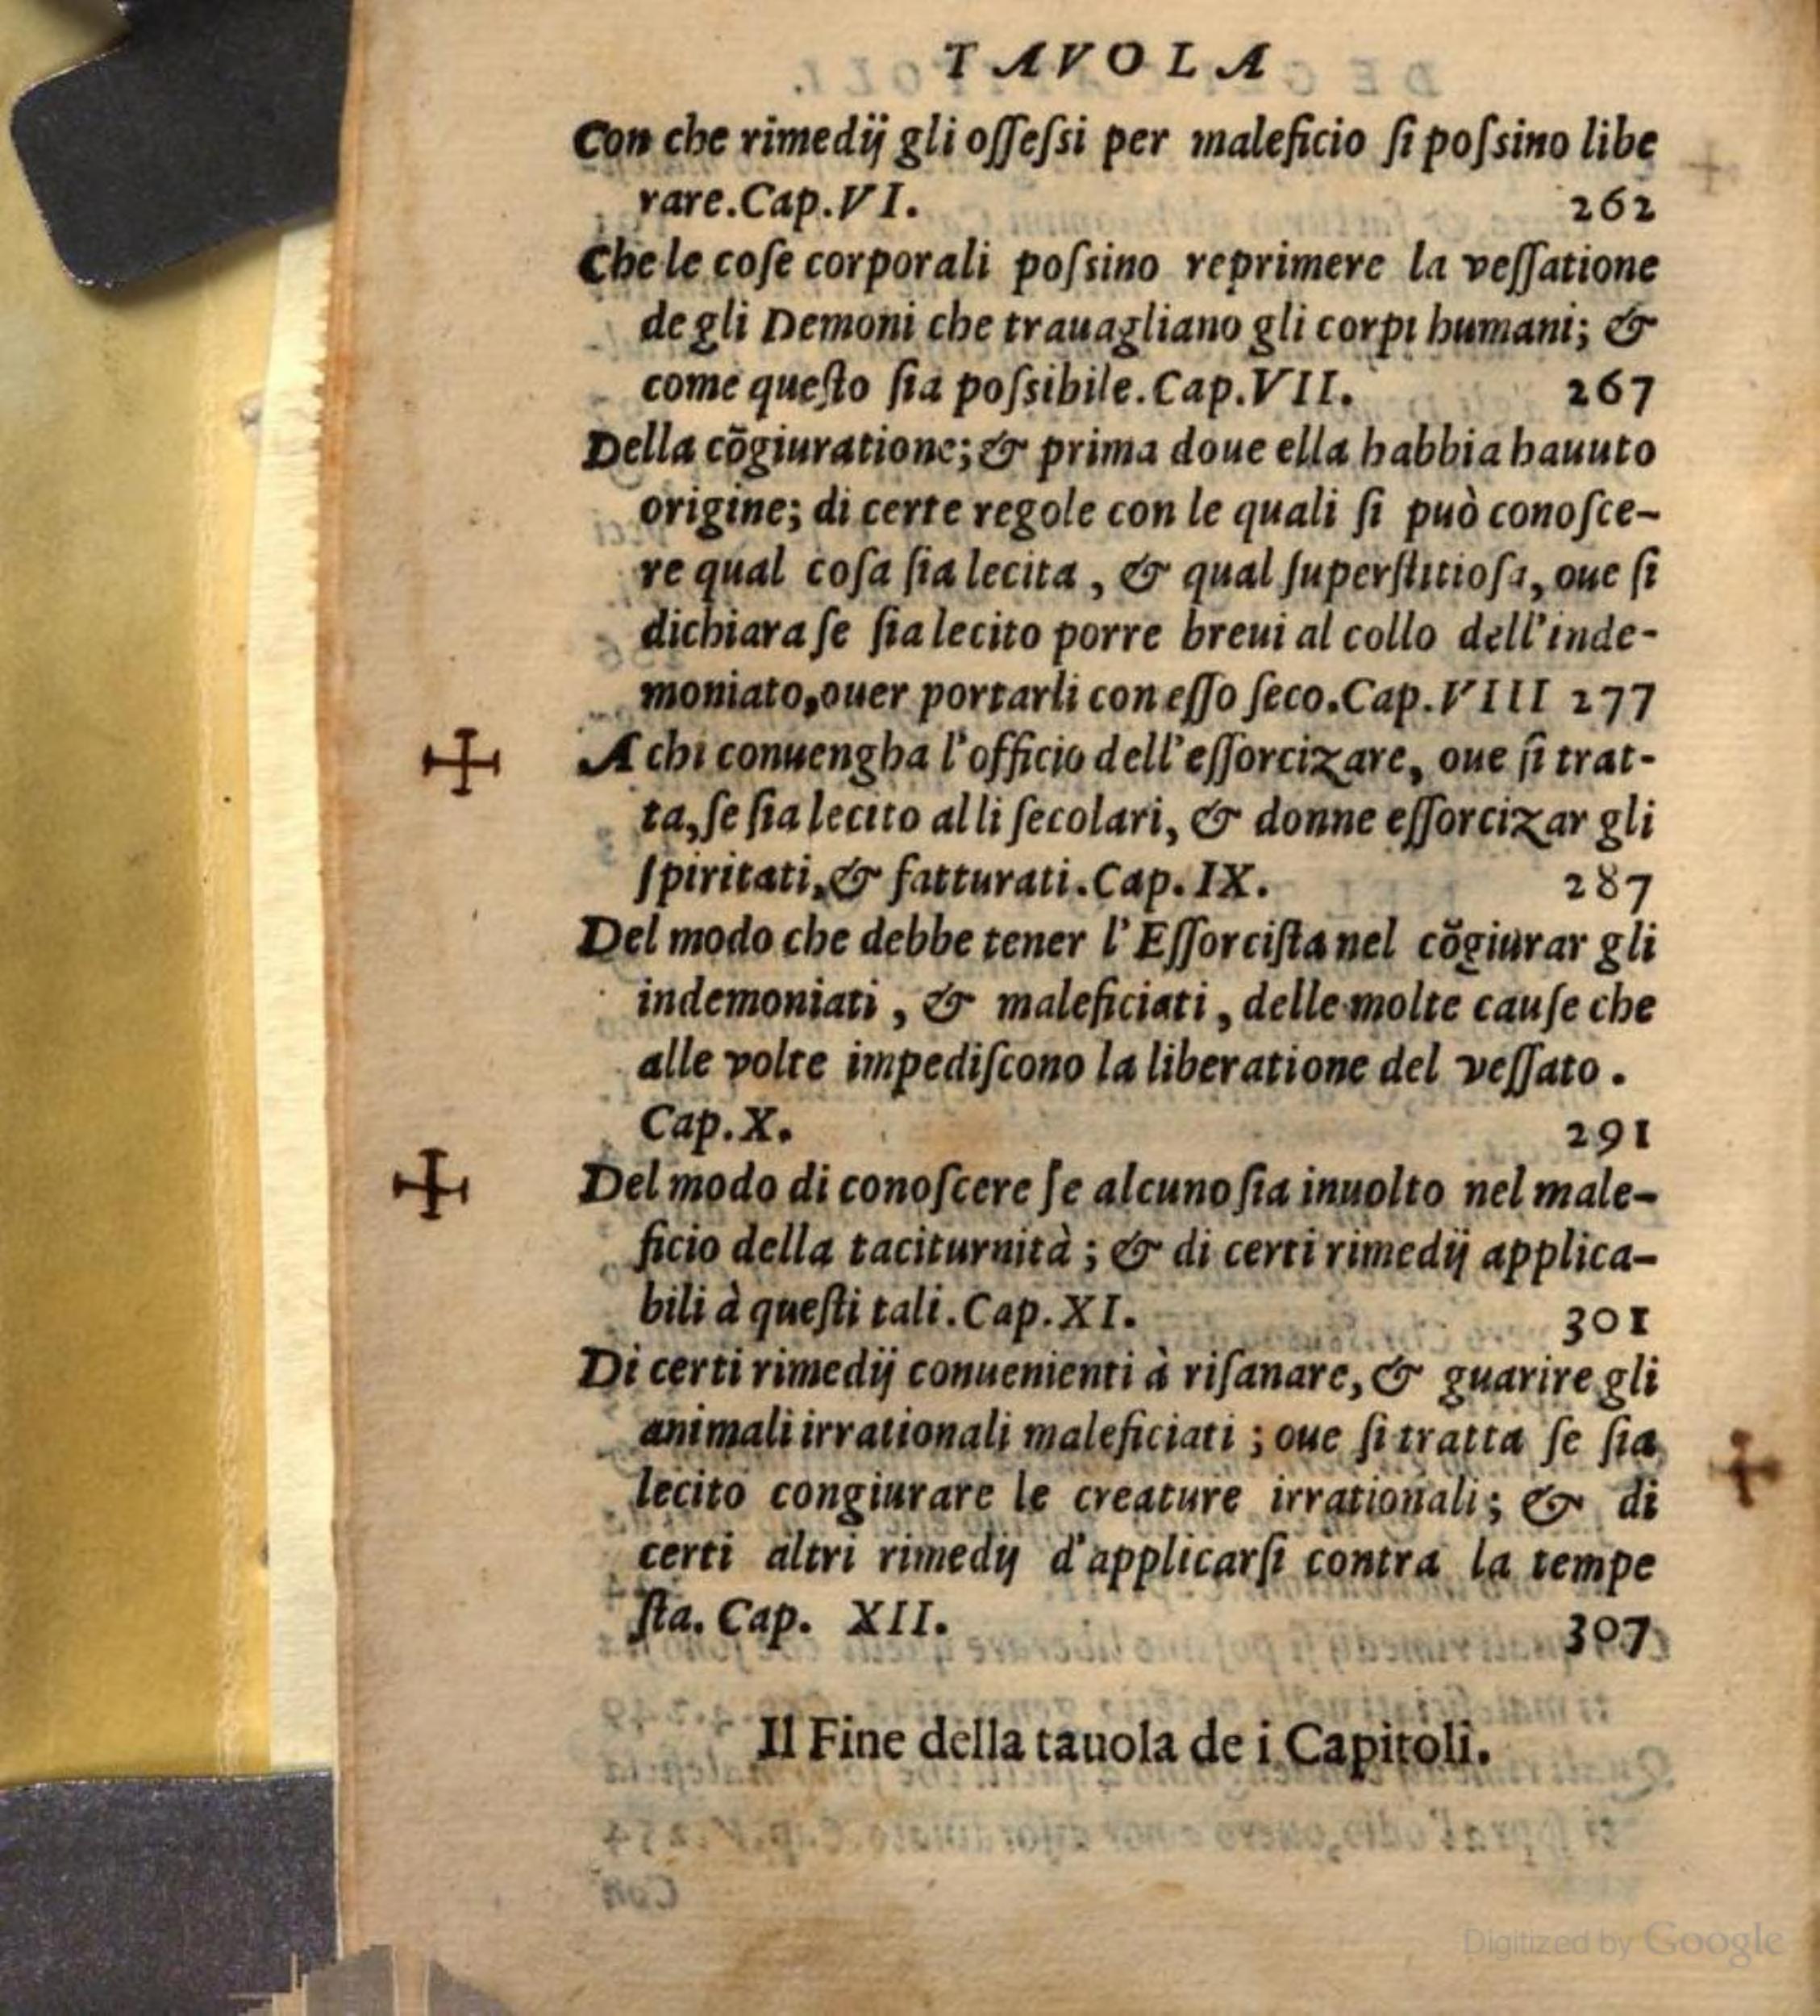 TAVOLA
Con che rimedij gli oſſeſsi per maleficio ſi poſsino libe
rare. Cap. VI. 262
Che le coſe corporali poſsino reprimere la veſſatione
de gli Demoni che trauagliano gli corpi humani; &
come queſto ſia poſsibile. Cap. VII. 267
Della cõgiuratione; & prima doue ella habbia hauuto
origine; di certe regole con le quali ſi può conoſce-
re qual coſa ſia lecita, & qual ſuperſtitioſa, oue ſi
dichiara ſe ſia lecito porre breui al collo dell'inde-
moniato, ouer portarli con eſſo ſeco. Cap. VIII 277
A chi conuengha l'officio dell'eſſorcizare, oue ſi trat-
ta, ſe ſia lecito alli ſecolari, & donne eſſorcizar gli
ſpiritati, & fatturati. Cap. IX. 287
Del modo che debbe tener l'Eſſorciſta nel cõgiurar gli
indemoniati, & maleficiati, delle molte cauſe che
alle volte impediſcono la liberatione del veſſato.
Cap. X. 291
Del modo di conoſcere ſe alcuno ſia inuolto nel male-
ficio della taciturnità; & di certi rimedij applica-
bili à queſti tali. Cap. XI. 301
Di certi rimedij conuenienti à riſanare, & guarire gli
animali irrationali maleficiati; oue ſi tratta ſe ſia
lecito congiurare le creature irrationali; & di
certi altri rimedij d'applicarſi contra la tempe
ſta. Cap. XII. 307
Il Fine della tauola de i Capitoli.
Digitized by Google